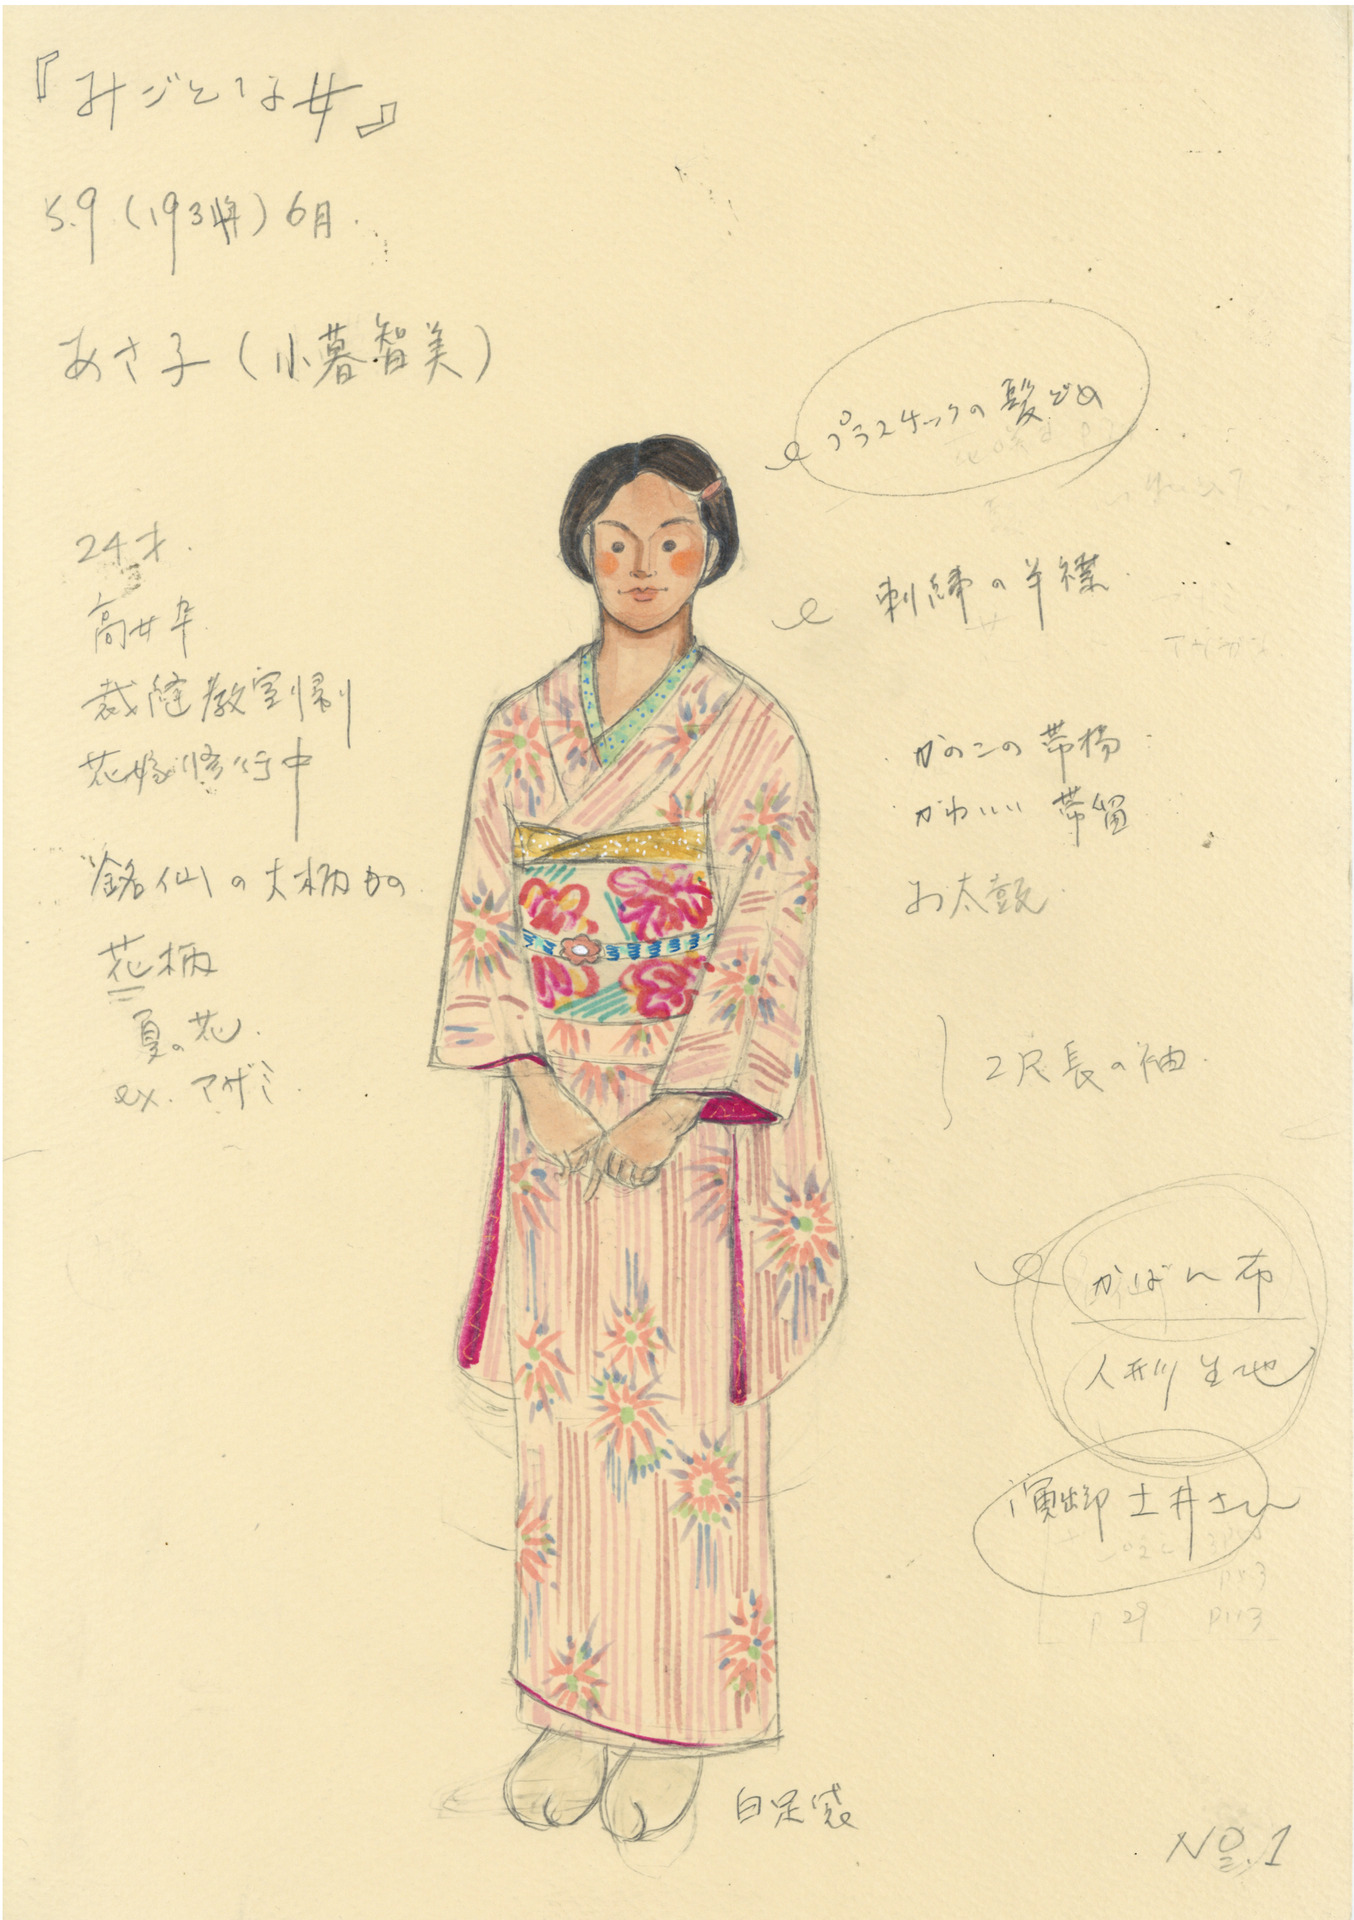 『みごとな女』
S.9（1934年）6月.
あさ子（小暮智美）
プラスチックの髪どめ
24才.
高女卒
裁縫教室
花嫁修行中
銘仙の大柄かの
花柄
夏の花.
ex. アザミ.
刺繍の半襟.
かのこの帯揚
かわいい帯留
お太鼓.
2尺長の袖.
かばん布
人形生地
土井さん
p29 p113
白足袋
No.1